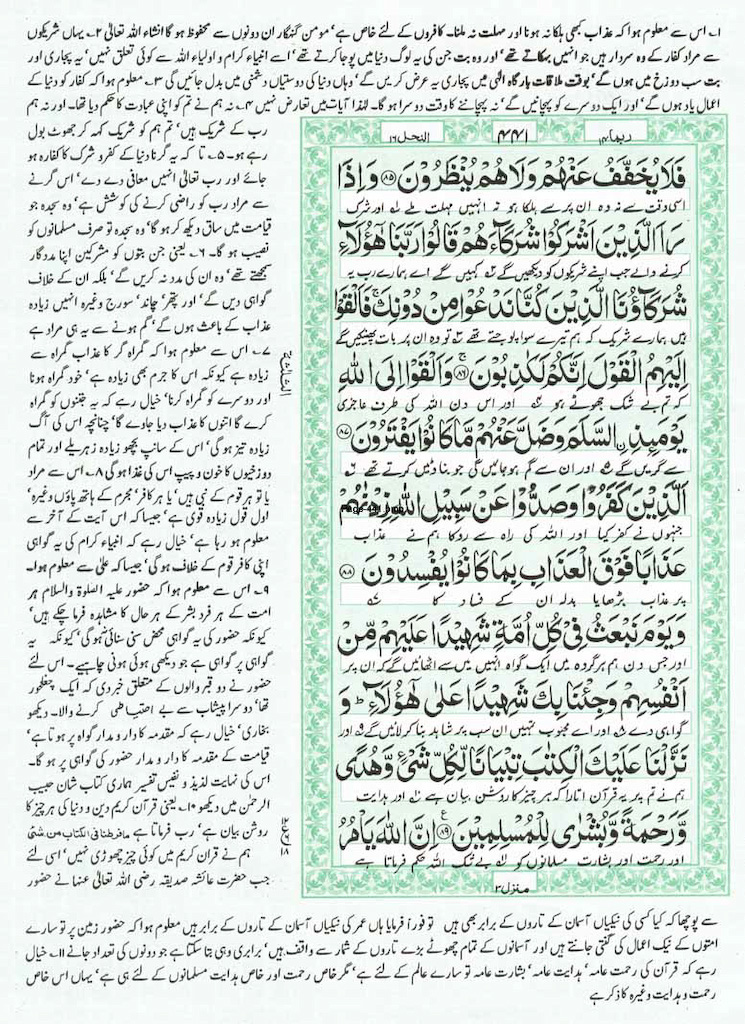 ۱۔ اس سے معلوم ہوا کہ عذاب کبھی ہلکا نہ ہونا اور مہلت نہ ملنا۔ کافروں کے لئے خاص ہے' مومن گنہگار ان دونوں سے محفوظ ہو گا انشاء اللہ تعالیٰ ۲۔ یہاں شریکوں
سے مراد کفار کے وہ سردار ہیں جو انہیں بہکاتے تھے' اور وہ بت جن کی یہ لوگ دنیا میں پوجا کرتے تھے' اسے انبیاء کرام و اولیاء اللہ سے کوئی تعلق نہیں' یہ پجاری اور
بت سب دوزخ میں ہوں گے' بوقت ملاقات بارگاہ الٰہی میں پجاری یہ عرض کریں گے' وہاں دنیا کی دوستیاں دشمنی میں بدل جائیں گی ۳۔ معلوم ہوا کہ کفار کو دنیا کے
اعمال یاد ہوں گے' اور ایک دوسرے کو پہچانیں گے' نہ پہچاننے کا وقت دوسرا ہو گا۔ لہٰذا آیات میں تعارض نہیں ۴۔ نہ ہم نے تم کو اپنی عبادت کا حکم دیا تھا۔ اور نہ ہم
رب کے شریک ہیں' تم ہم کو شریک کہہ کر جھوٹ بول
رہے ہو۔ ۵۔ تا کہ یہ گرنا دنیا کے کفر و شرک کا کفارہ ہو
جائے اور رب تعالیٰ انہیں معافی دے دے' اس گرنے
سے مراد رب کو راضی کرنے کی کوشش ہے' وہ سجدہ جو
قیامت میں ساق دیکھ کر ہو گا' وہ سجدہ تو صرف مسلمانوں کو
نصیب ہو گا۔ ۶۔ یعنی جن بتوں کو مشرکین اپنا مددگار
سمجھتے تھے' وہ ان کی مدد نہ کریں گے' بلکہ ان کے خلاف
گواہی دیں گے' اور پتھر' چاند' سورج وغیرہ انہیں زیادہ
عذاب کے باعث ہوں گے' گم ہونے سے یہ ہی مراد ہے
۷۔ اس سے معلوم ہوا کہ گمراہ گر کا عذاب گمراہ سے
زیادہ ہے کیونکہ اس کا جرم بھی زیادہ ہے' خود گمراہ ہونا
اور دوسرے کو گمراہ کرنا' خیال رہے کہ یہ جتنوں کو گمراہ
کرے گا اتنوں کا عذاب دیا جاوے گا' چنانچہ اس کی آگ
زیادہ تیز ہو گی' اس کے سانپ بچھو زیادہ زہریلے اور تمام
دوزخیوں کا خون و پیپ اس کی غذا ہو گی ۸۔ اس سے مراد
یا تو ہر قوم کے نبی ہیں' یا ہر کافر' مجرم کے ہاتھ پاؤں وغیرہ'
اول قول زیادہ قوی ہے' جیسا کہ اس آیت کے آخر سے
معلوم ہو رہا ہے' خیال رہے کہ انبیاء کرام کی یہ گواہی
اپنی کافر قوم کے خلاف ہو گی' جیسا کہ علیٰ سے معلوم ہوا۔
۹۔ اس سے معلوم ہوا کہ حضور علیہ الصلوٰۃ والسلام ہر
امت کے ہر فرد بشر کے ہر حال کا مشاہدہ فرما چکے ہیں'
کیونکہ حضور کی یہ گواہی محض سنی سنائی نہ ہو گی' کیونکہ یہ
گواہی پر گواہی ہے جو دیکھی ہوئی ہونی چاہیے۔ اس لئے
حضور نے دو قبر والوں کے متعلق خبر دی کہ ایک چغلخور
تھا' دوسرا پیشاب سے بے احتیاطی کرنے والا۔ دیکھو
بخاری' خیال رہے کہ مقدمہ کا دار و مدار گواہ پر ہوتا ہے'
قیامت کے مقدمہ کا دار و مدار حضور کی گواہی پر ہو گا۔
اس کی نہایت لذیذ و نفیس تفسیر ہماری کتاب شان حبیب
الرحمٰن میں دیکھو ۱۰۔ یعنی قرآن کریم دین و دنیا کی ہر چیز کا
روشن بیان ہے' رب فرماتا ہے مافرطنا فی الکتاب من شئی
ہم نے قرآن کریم میں کوئی چیز چھوڑی نہیں' اسی لئے
جب حضرت عائشہ صدیقہ رضی اللہ تعالیٰ عنہا نے حضور
ربما ۱۴
۴۴۱
النحل ۱۶
فَلَا يُخَفَّفُ عَنْهُمْ وَلَا هُمْ يُنْظَرُونَ ﴿۸۵﴾ وَإِذَا
اسی وقت سے نہ وہ ان پر سے ہلکا ہو نہ انہیں مہلت ملے ۱ اور شرک
رَاَ الَّذِينَ اَشْرَكُوْا شُرَكَآءَهُمْ قَالُوْا رَبَّنَا هٰٓؤُلَآءِ
کرنے والے جب اپنے شریکوں کو دیکھیں گے ۲ کہیں گے اے ہمارے رب یہ
شُرَكَآؤُنَا الَّذِيْنَ كُنَّا نَدْعُوْا مِنْ دُوْنِكَ ۚ فَاَلْقَوْا
ہیں ہمارے شریک کہ ہم تیرے سوا پوجتے تھے ۳ تو وہ ان پر بات پھینکیں گے
اِلَيْهِمُ الْقَوْلَ اِنَّكُمْ لَكٰذِبُوْنَ ﴿۸۶﴾ وَاَلْقَوْا اِلَى اللّٰهِ
کہ تم بے شک جھوٹے ہو ۴ اور اس دن اللہ کی طرف عاجزی
يَوْمَئِذِ نِ السَّلَمَ وَضَلَّ عَنْهُمْ مَّا كَانُوْا يَفْتَرُوْنَ ﴿۸۷﴾
سے گریں گے ۵ اور ان سے گم ہو جائیں گی جو بناوٹیں کرتے تھے ۶
اَلَّذِيْنَ كَفَرُوْا وَصَدُّوْا عَنْ سَبِيْلِ اللّٰهِ زِدْنٰهُمْ
جنہوں نے کفر کیا اور اللہ کی راہ سے روکا ہم نے عذاب
عَذَابًا فَوْقَ الْعَذَابِ بِمَا كَانُوْا يُفْسِدُوْنَ ﴿۸۸﴾
پر عذاب بڑھایا بدلہ ان کے فساد کا ۷
وَيَوْمَ نَبْعَثُ فِيْ كُلِّ اُمَّةٍ شَهِيْدًا عَلَيْهِمْ مِّنْ
اور جس دن ہم ہر گروہ میں ایک گواہ انہیں میں سے اٹھائیں گے کہ ان پر
اَنْفُسِهِمْ وَجِئْنَا بِكَ شَهِيْدًا عَلٰى هٰٓؤُلَآءِ ؕ وَ
گواہی دے ۸ اور اے محبوب تمہیں ان سب پر شاہد بنا کر لائیں گے ۹ اور
نَزَّلْنَا عَلَيْكَ الْكِتٰبَ تِبْيَانًا لِّكُلِّ شَيْءٍ وَّهُدًى
ہم نے تم پر یہ قرآن اتارا کہ ہر چیز کا روشن بیان ہے ۱۰ اور ہدایت
وَّرَحْمَةً وَّبُشْرٰى لِلْمُسْلِمِيْنَ ﴿۸۹﴾ اِنَّ اللّٰهَ يَاْمُرُ
اور رحمت اور بشارت مسلمانوں کو ۱۱ بے شک اللہ حکم فرماتا ہے
منزل ۳
سے پوچھا کہ کیا کسی کی نیکیاں آسمان کے تاروں کے برابر بھی ہیں تو فورًا فرمایا ہاں عمر کی نیکیاں آسمان کے تاروں کے برابر ہیں معلوم ہوا کہ حضور زمین پر تو سارے
امتوں کے نیک اعمال کی گنتی جانتے ہیں اور آسمانوں کے تمام چھوٹے بڑے تاروں کے شمار سے واقف ہیں' برابری وہی بتا سکتا ہے جو دونوں کی تعداد جانے ۱۱۔ خیال
رہے کہ قرآن کی رحمت عامہ' ہدایت عامہ' بشارت عامہ تو سارے عالم کے لئے ہے' مگر خاص رحمت اور خاص ہدایت مسلمانوں کے لئے ہی ہے' یہاں اس خاص
رحمت و ہدایت وغیرہ کا ذکر ہے